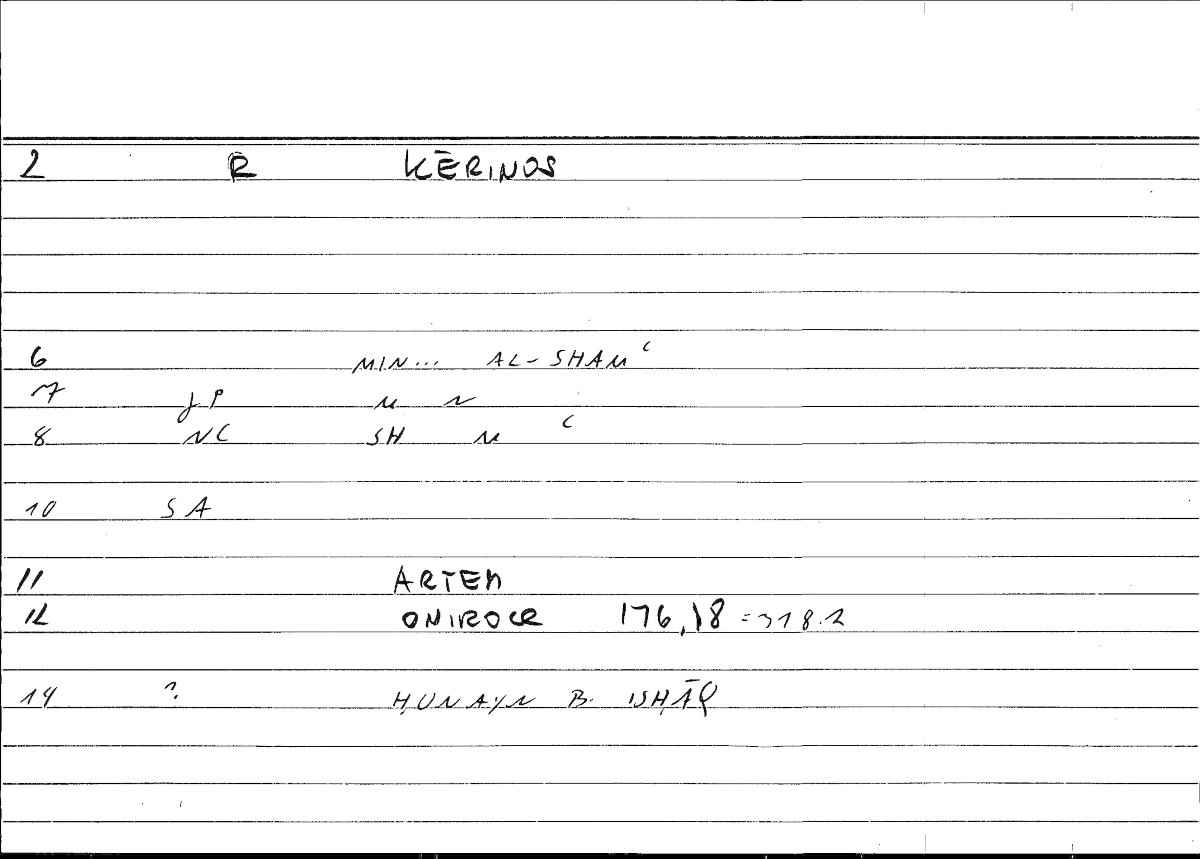 2 R KĒRINOS
6 MIN... AL-SHAMʿ
7 JP M N
8 NC SH M ʿ
10 SA
11 ARTEM
12 ONIROCR 176,18 =318.2
14 ? ḤUNAYN B. ISḤĀQ